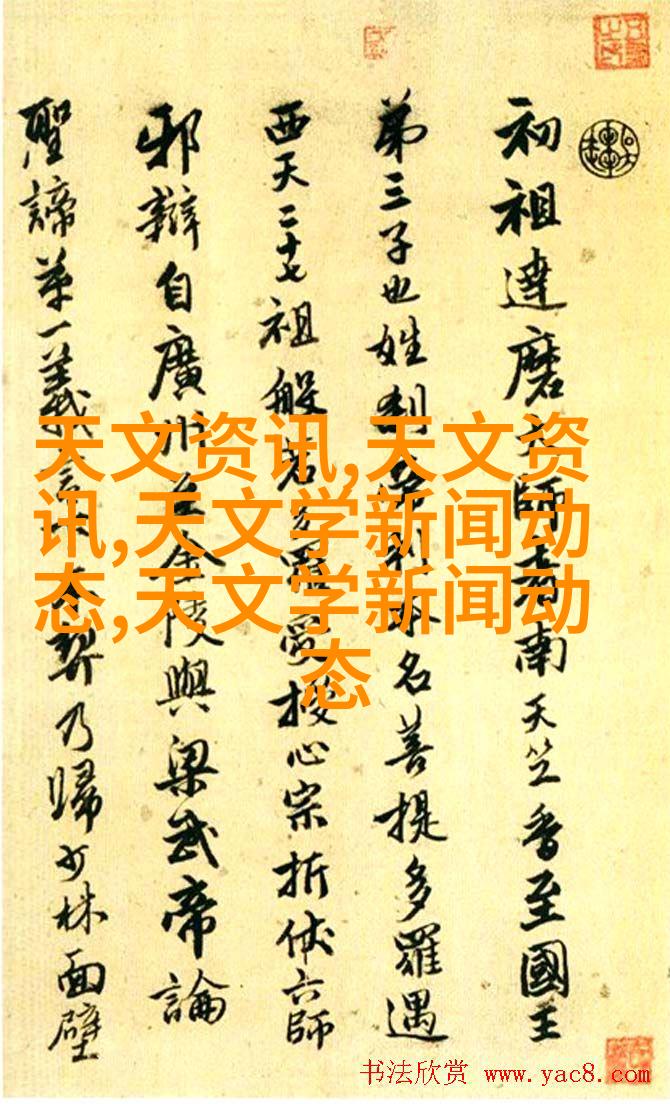 初祖達磨大師者南天竺香至國王
第三子也姓刹帝利本名菩提多羅遇
西天二十七祖般若多羅受授心宗折伏六師
邪辯自廣州至金陵與梁武帝論
聖諦第一義契乃歸少林面壁
天文资讯,天文资
讯,天文学新闻动
态,天文学新闻动
态
书法欣赏 www.yac8.com